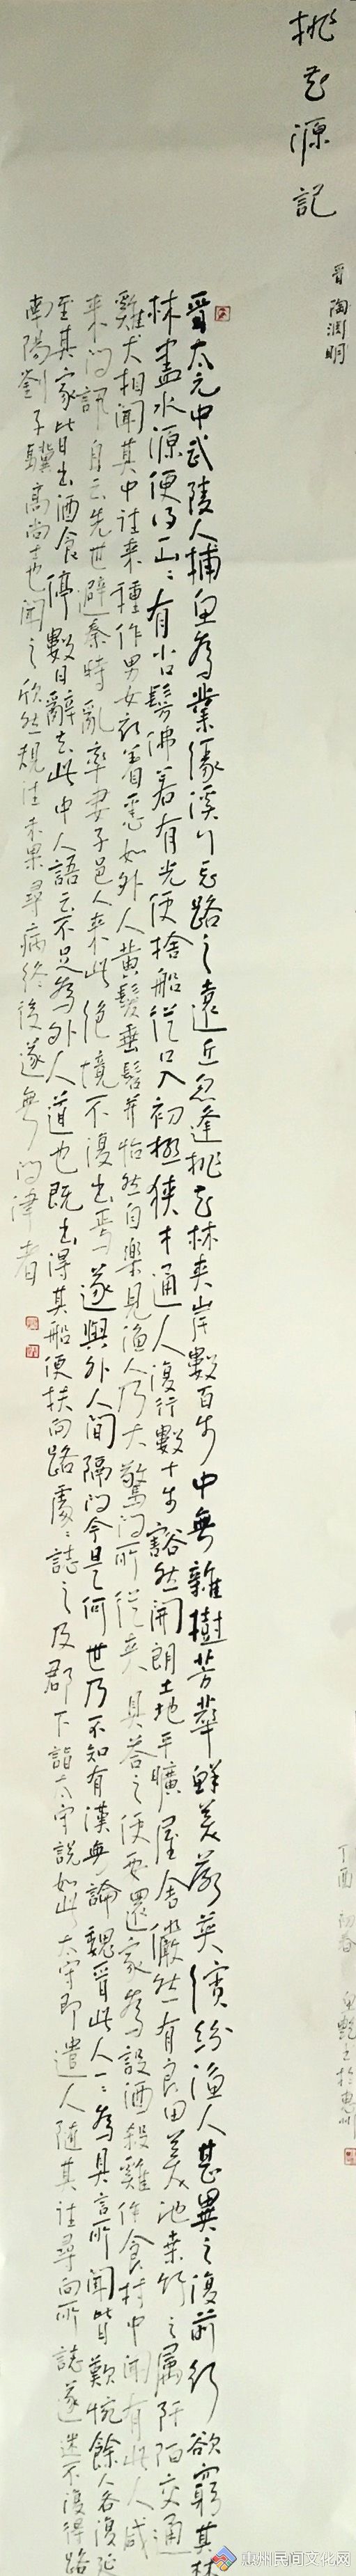 桃花源記
晋 陶淵明
晋太元中武陵人捕魚為業缘溪行忘路之遠近忽逢桃花林夹岸數百步中無雜樹芳華鲜美落英缤纷渔人甚異之復前行欲窮其林
林盡水源便得山々有小口髣彿若有光便捨船從口入初極狭才通人復行數十步豁然開朗土地平曠屋舍儼然有良田美池桑竹之屬阡陌交通
雞犬相聞其中往来種作男女衣着悉如外人黄髮垂髫并怡然自樂見渔人乃大驚问所從来具答之便要還家為設酒殺雞作食村中聞有此人咸
来问訊自云先世避秦時亂率妻子邑人来此绝境不復出焉遂與外人间隔问今是何世乃不知有漢無論魏晋此人一一為具言所聞皆歎惋餘人各復延
至其家皆出酒食停數日辭去此中人語云不足為外人道也既出得其船便扶向路處々誌之及郡下詣太守説如此太守即遣人随其往尋向所誌遂迷不復得路
南陽劉子驥高尚士也聞之欣然規往未果尋病终後遂無问津者
丁酉初春
於惠州
惠州民间文化网